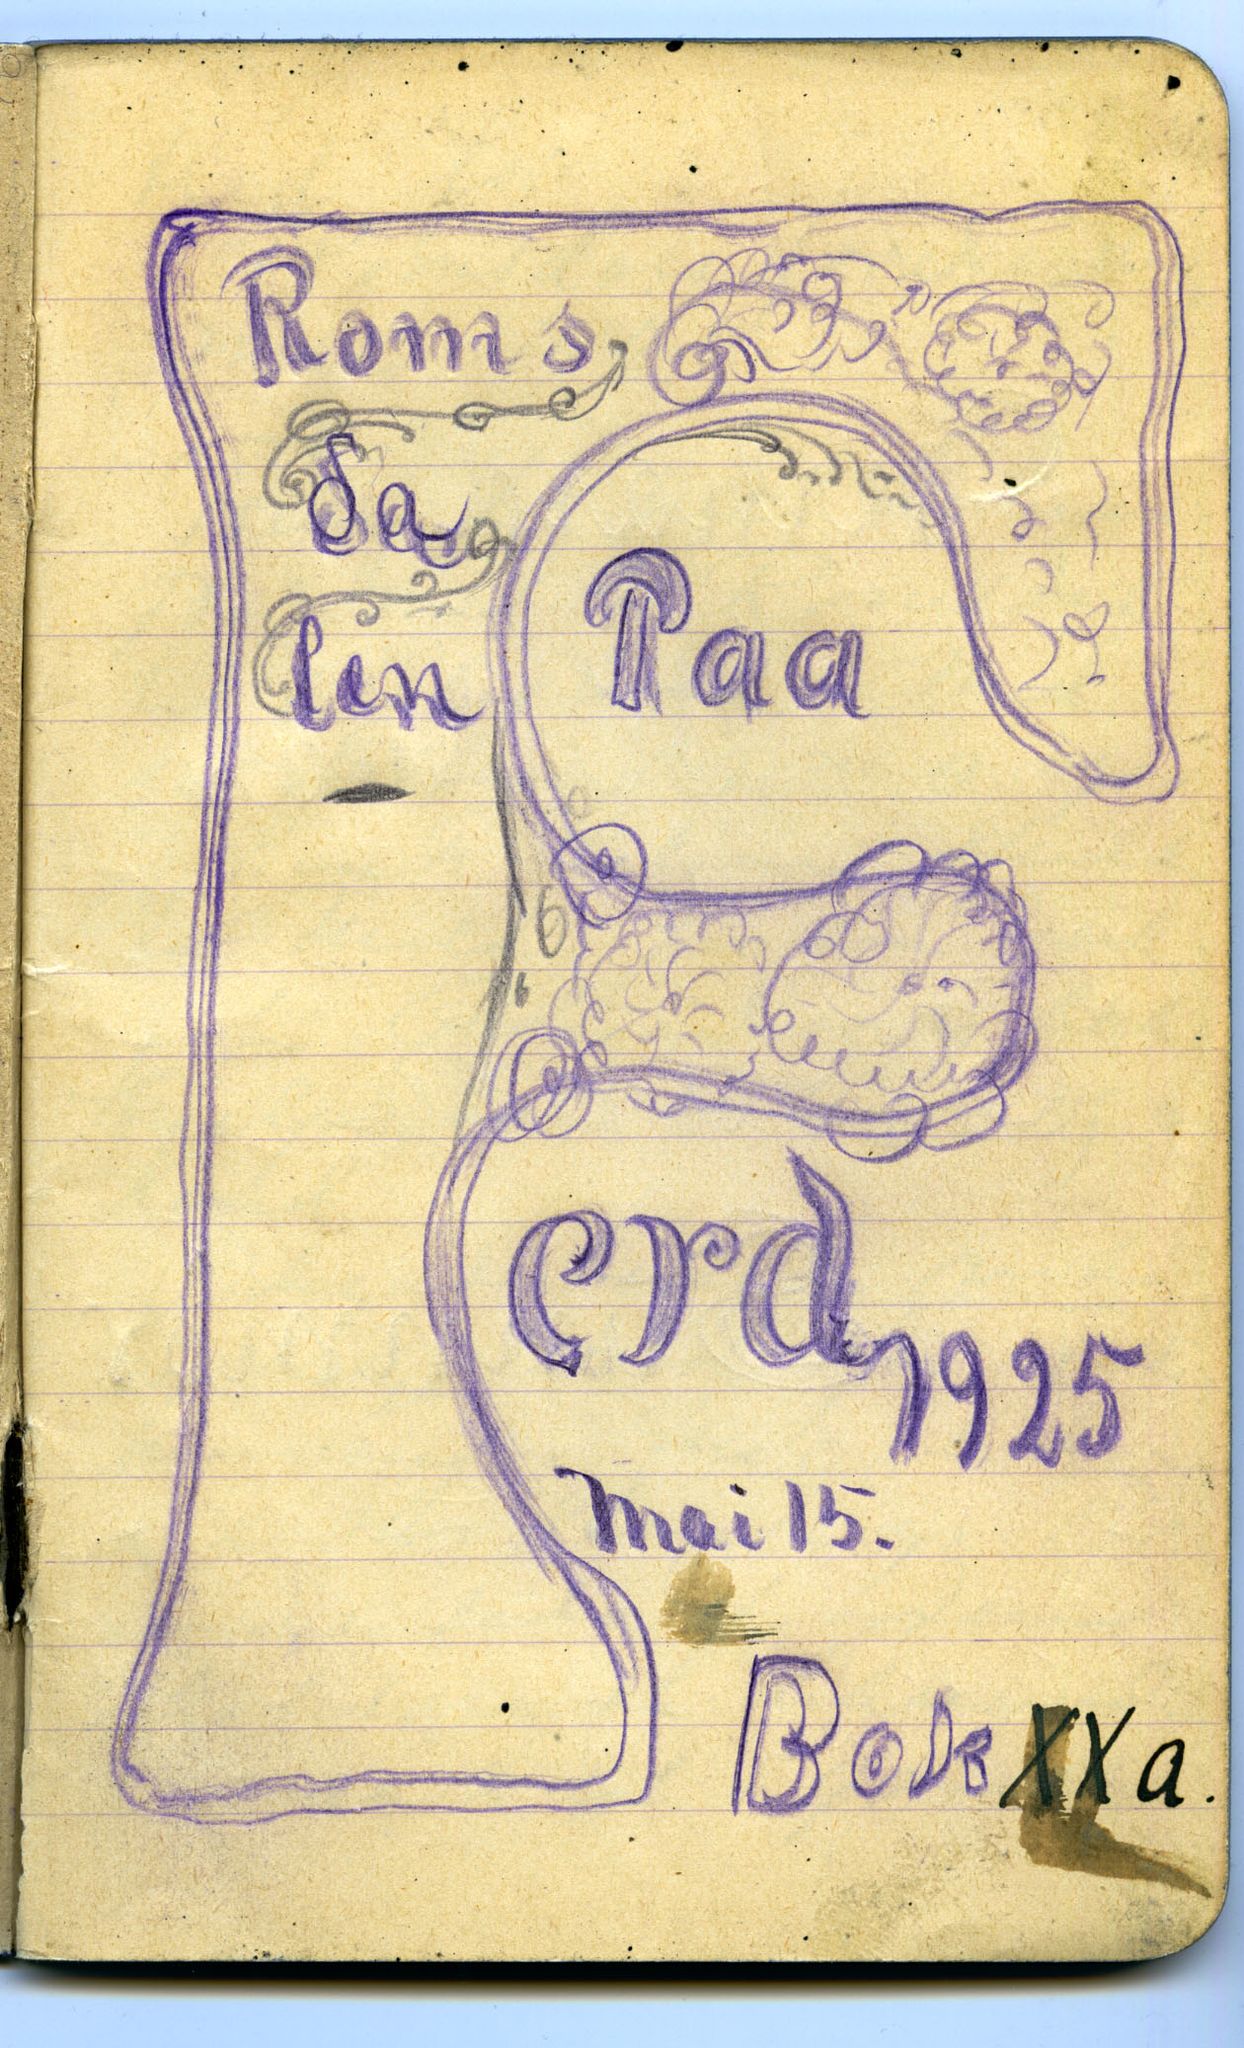 Roms
da
len
Paa
Ferd 1925
Mai 15.
Bok XXa.